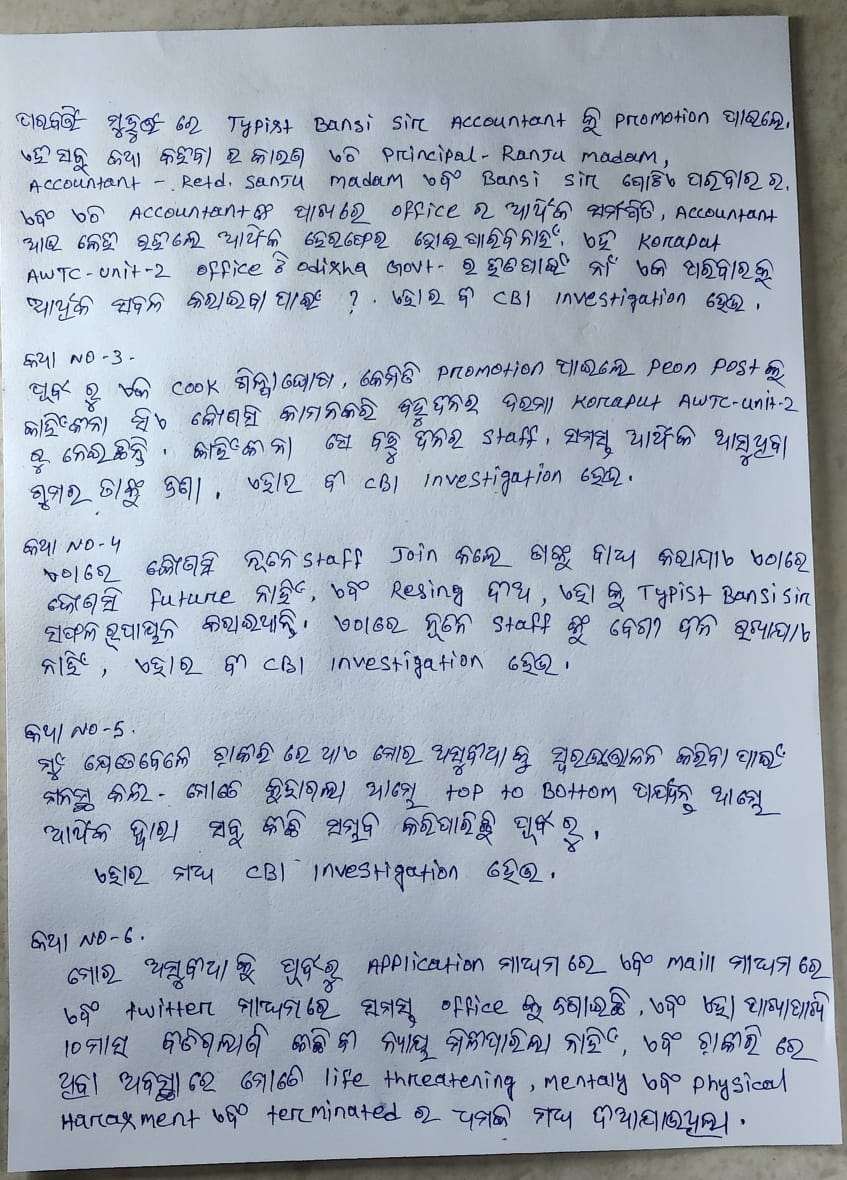 ପରବର୍ତ୍ତୀ ମୁହୁର୍ତ୍ତ ରେ Typist Bansi Sir Accountant କୁ promotion ପାଇଲେ,
ଏହି ସବୁ କଥା କହିବା ର କାରଣ ଏଠି Principal- Ranju madam,
Accountant - Retd. Sanju madam ଏବଂ Bansi sir ଗୋଟିଏ ପରିବାର ର,
ଏବଂ ଏଠି Accountant ଙ୍କ ପାଖରେ office ର ଆର୍ଥିକ ସମ୍ପତ୍ତି, Accountant
ଆଉ କେହି ରହିଲେ ଆର୍ଥିକ ହେରଫେର ହୋଇପାରିବ ନାହିଁ. ଏହି Koraput
AWTC-unit-2 office ଟି odisha Govt- ର ହିତପାଇଁ ନାଁ ଏକ ପରିବାରକୁ
ଆର୍ଥିକ ସବଳ କରାଇବା ପାଇଁ ?. ଏହାର ବୀ CBI investigation ହେଉ.
କଥା NO-3-
ପୂର୍ବ ରୁ ଏକ cook ଶିଳ୍ପା ଘୋଷ, କେମିତି promotion ପାଇଲେ peon post କୁ
କାହିଁକୀନା ସିଏ କୋଣସି କାମନକରି ବହୁ ଦିନର ଦରମା Koraput AWTC-unit-2
ରୁ ନେଇଛନ୍ତି. କାହିଁକୀ ନା ସେ ବହୁ ଦିନର staff, ସମସ୍ତ ଆର୍ଥିକ ଆସୁଥିବା
ଗୁମର ତାଙ୍କୁ ଜଣା, ଏହାର ବୀ CBI investigation ହେଉ.
କଥା NO-4
ଏଠାରେ କୋଣସି ନୂତନ staff Join କଲେ ତାଙ୍କୁ ବାଧ୍ୟ କରାଯାଏ ଏଠାରେ
କୋଣସି future ନାହିଁ, ଏବଂ Resing ଦୀଅ, ଏହା କୁ Typist Bansi sir
ସଫଳ ରୂପାୟନ କରାଇଥାନ୍ତି. ଏଠାରେ ନୂତନ staff ଙ୍କୁ ବେଶୀ ଦୀନ ରଖାଯାଏ
ନାହିଁ, ଏହାର ବୀ CBI investigation ହେଉ.
କଥା NO-5.
ମୁଁ ଯେତେବେଳେ ଚାକିରି ରେ ଥାଏ ମୋର ଅସୁବୀଧା କୁ ସ୍ୱରଉତ୍ତୋଳନ କରିବା ପାଇଁ
ମନସ୍ଥ କଲି - ମୋତେ କୁହାଗଲା ଆମ୍ଭେ top to Bottom ପର୍ଯ୍ୟନ୍ତ ଆମ୍ଭେ
ଆର୍ଥିକ ଦ୍ୱାରା ସବୁ କୀଛି ସମ୍ଭବ କରିପାରିଛୁ ପୂର୍ବ ରୁ,
ଏହାର ମଧ୍ୟ CBI investigation ହେଉ.
କଥା NO-6.
ମୋର ଅସୁବୀଧା କୁ ପୂର୍ବରୁ Application ମାଧ୍ୟମ ରେ ଏବଂ maill ମାଧ୍ୟମ ରେ
ଏବଂ twitter ମାଧ୍ୟମରେ ସମସ୍ତ office କୁ ଜଣାଇଛି, ଏବଂ ଏହା ପାଖାପାଖି
10 ମାସ ବୀତିଗଲାଣି କୀଛି ବୀ ନ୍ୟାୟ ମିଳୀପାରିଲା ନାହିଁ, ଏବଂ ଚାକୀରି ରେ
ଥିବା ଅବସ୍ଥା ରେ ମୋତେ life threatening, mentaly ଏବଂ physical
Harasment ଏବଂ terminated ର ଧମକି ମଧ୍ୟ ଦୀଆଯାଉଥିଲା.